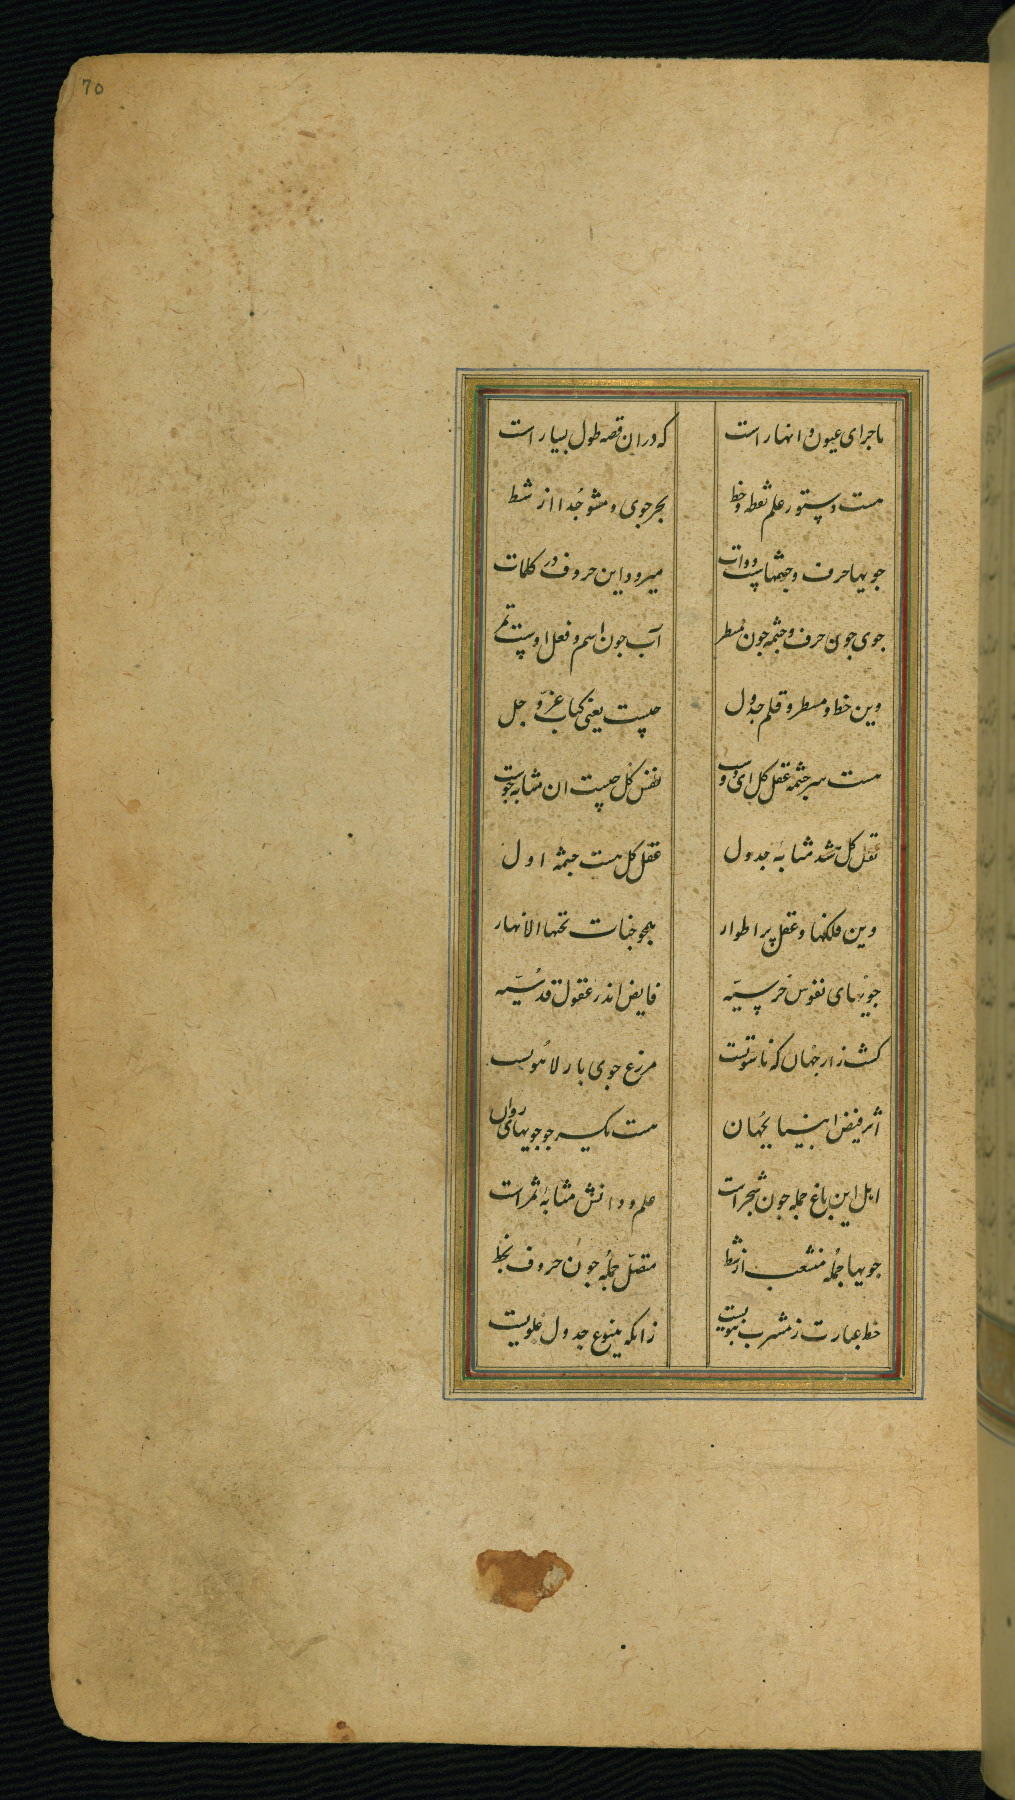 70
ماجرای عیون و انهار است که دران قصه طول بسیار است
هست دستور علم نقطه و خط بحر جوی و مشو جُدا از شط
جویها حرف و چشمهاست دوات میرود این حروف در کلمات
جوی چون حرف و چشمه چون مسطر آب چون اسم و فعل اوست
وین خط و مسطر و قلم جدول چیست یعنی کتاب عزّ و جل
هست سرچشمه عقل کل ای دوست نفس کل چیست ان مشابه جوست
کل شد مشابهٔ جدول عقل کل هست چشمهٔ اول
وین فلکها و عقل پر اطوار همچو جنات تحتها الانهار
جویهای نفوس فایض اندر عقول قدسیّه
کشت زار جهان که ناسوتیست مزرع جوی بار لاهوتیست
اثر فیض انبیا بجهان هست یکسر چو جویهای روان
اهل این باغ جمله چون شجر است علم و دانش مثابهٔ ثمر است
جویها جمله منشعب از شط متصل جمله چون حروف بخط
خط بهارت ز مشرب نبویست زانکه ینبوع جدول علویست